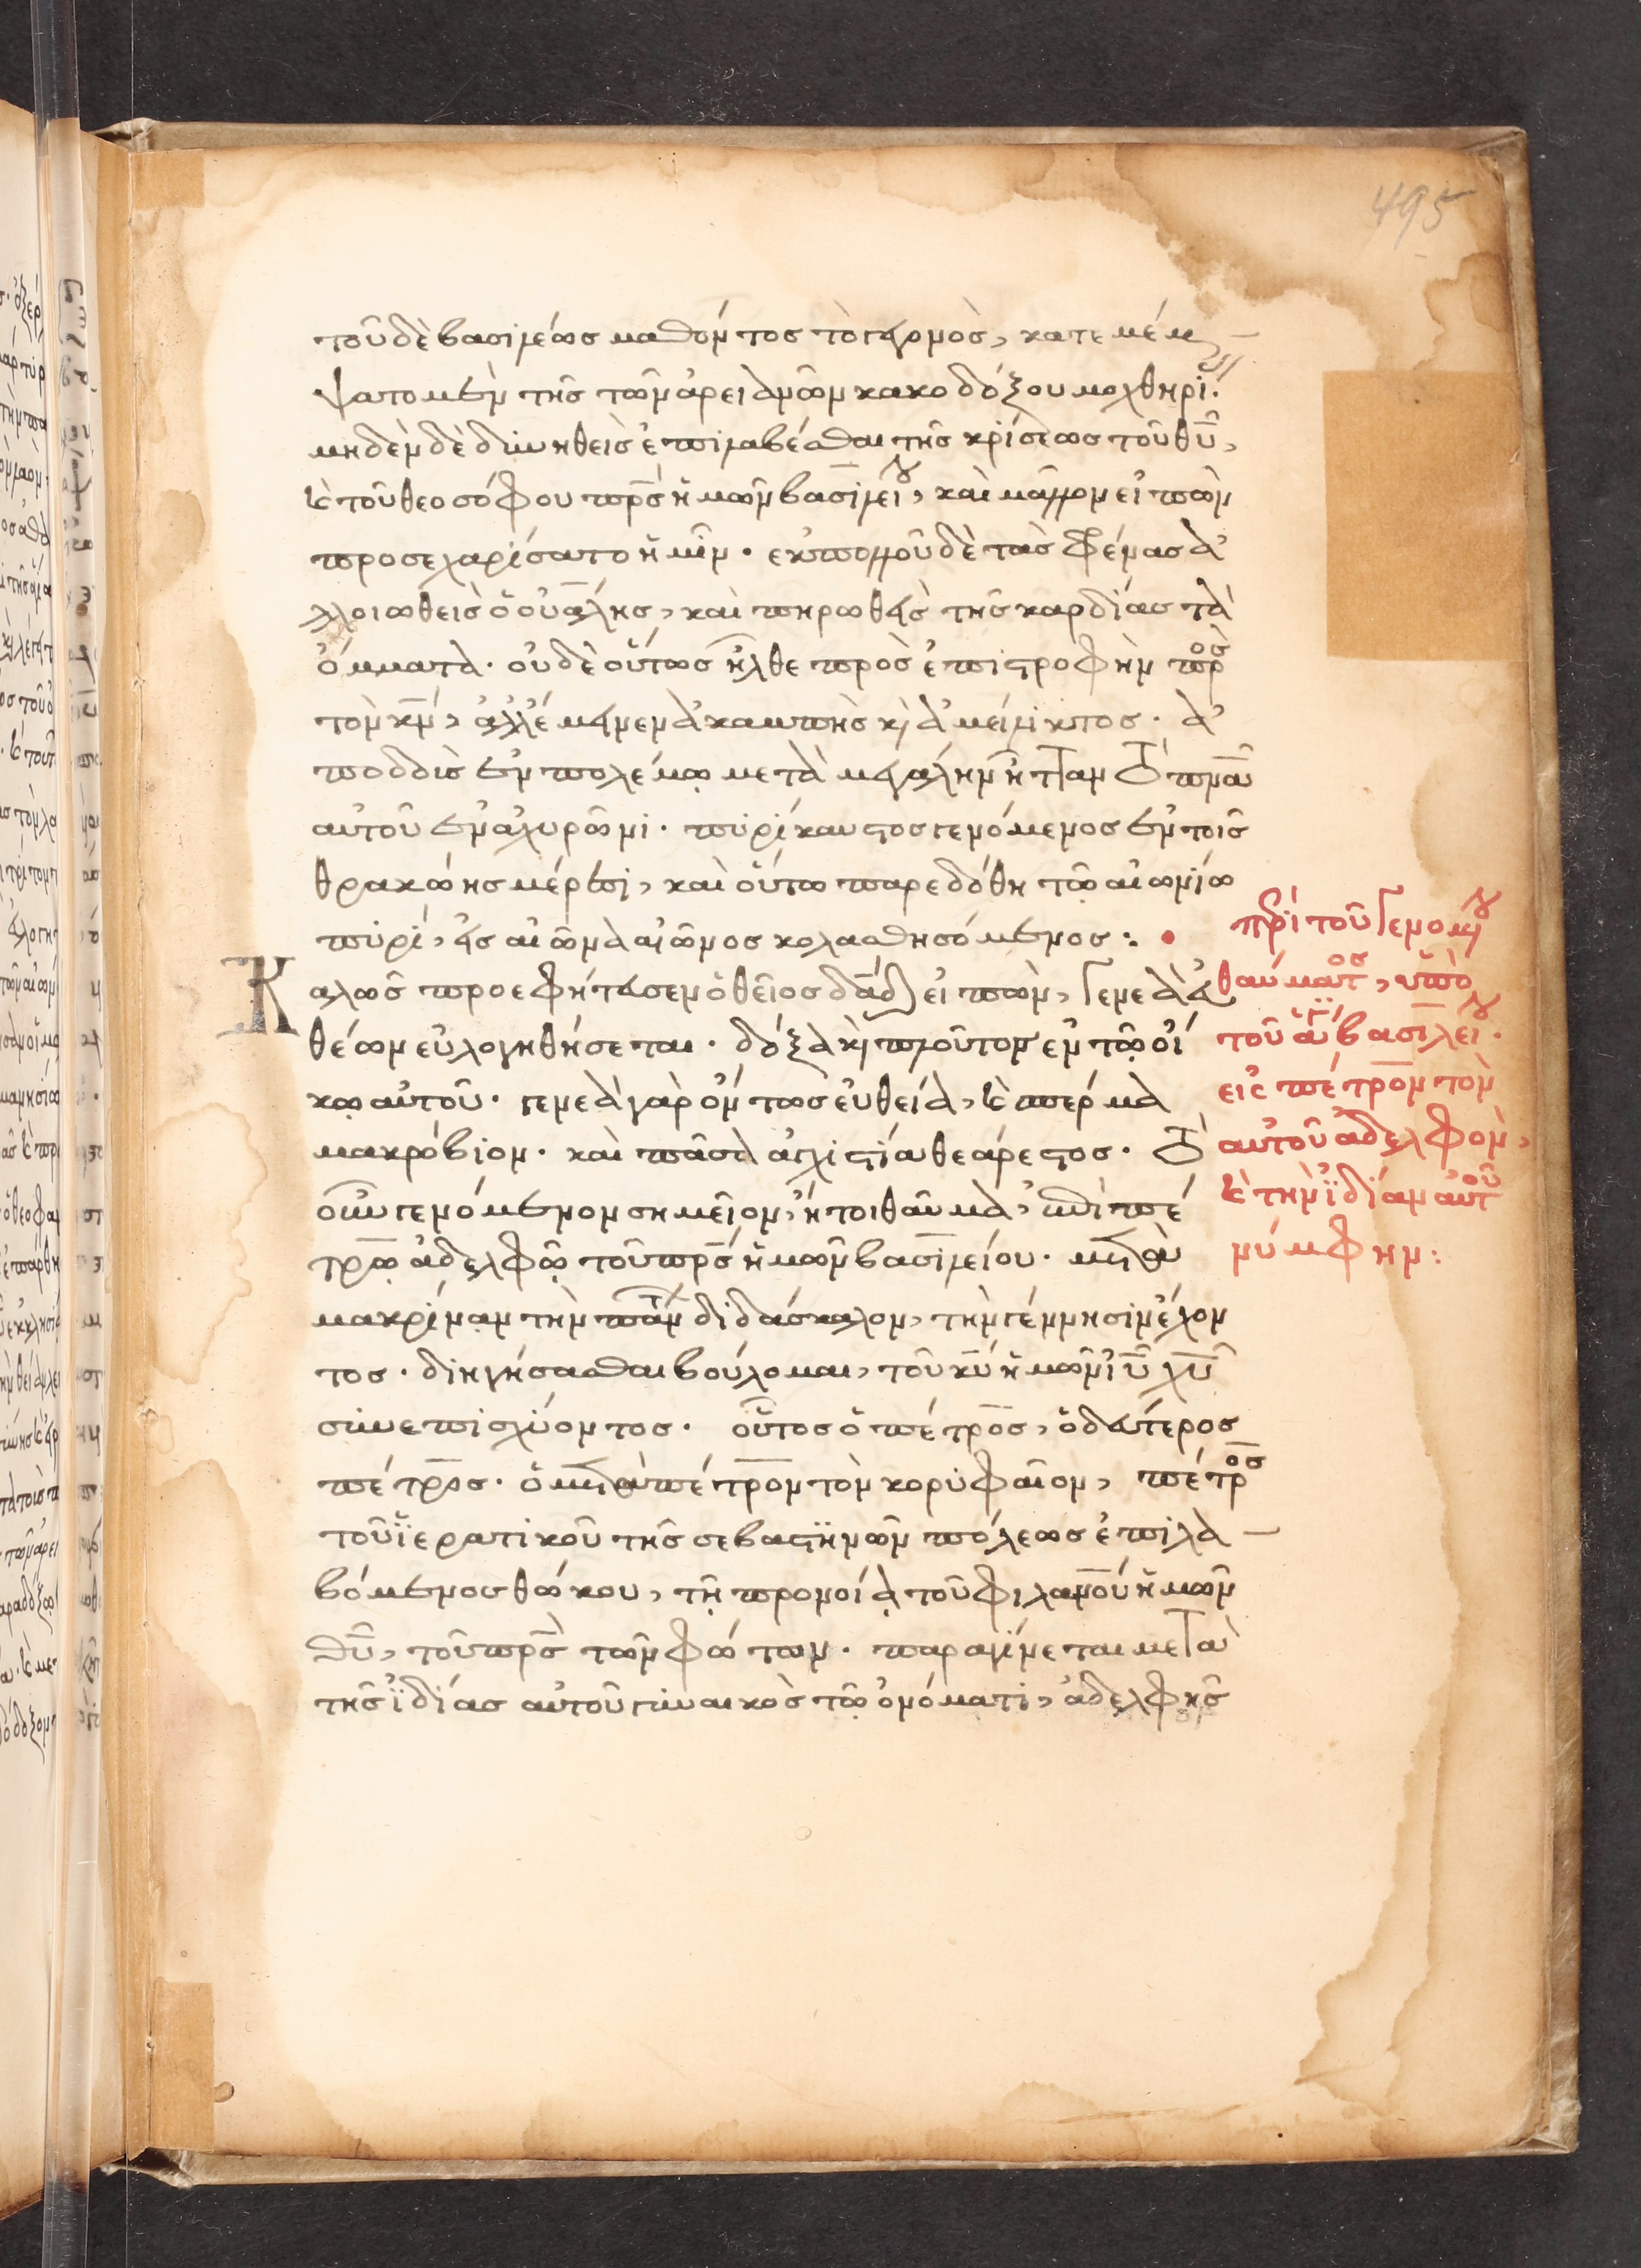 495
τοῦ δὲ βασιλέως μαθόντος τὸ γεγονὸς, κατεμέμ
ψατο μὲν τῆς τῶν ἀρειανῶν κακοδόξου μοχθηρί.
μηδὲν δὲ δυνηθεὶς ἐπιλαβέσθαι τῆς κρίσεως τοῦ θῦ,
καὶ τοῦ θεοσόφου πρ̅ς ἡμῶν βασιλείου, καὶ μᾶλλον εἰπὼν
προσεχαρίσατο ἡμῖν. ἐκ πολλοῦ δὲ τὰς φρένας ἀ
λλοιωθεὶς ὁ οὐάλης, καὶ πηρωθεὶς τῆς καρδίας τὰ
ὄμματα. οὐδὲ οὕτως ἦλθε πρὸς ἐπιστροφὴν πρὸς
τὸν κν̅, ἀλλ' ἔμεινεν ἀκαμπὴς καὶ ἀμείλικτος. ἀ
ποδδὶς ἐν πολέμω μετὰ μεγάλην ἧτταν
αὐτοῦ ἐν ἀχυρῶνι. πυρίκαυστος γενόμενος ἐν τοῖς
θρακώης μέρεσι, καὶ οὕτω παρεδόθη τῶ αἰωνίω
πυρὶ, εἰς αἰῶνα αἰῶνος κολασθησόμενος:
Καλῶς προεφήτευσεν ὁ θεῖος δα̅δ εἰπὼν, γενεὰ εὐ
θέων εὐλογηθήσεται. δόξα καὶ πλοῦτος ἐν τῶ οἴ
κω αὐτοῦ. γενεὰ γὰρ ὄντως εὐθεία, καὶ σπέρμα
μακρόβιον. καὶ πᾶσα ἀγχιστία θεάρεστος. τὸ
οὖν γενόμενον σημεῖον, ἤτοι θαῦμα, ἐπὶ πέ
τρω ἀδελφῶ τοῦ πρ̅ς ἡμῶν βασιλείου. μετὰ
μακρίναν τὴν πάντων διδάσκαλον, τὴν γέννησιν ἔχον
τος. διηγήσασθαι βούλομαι, τοῦ κυ̅ ἡμῶν ιυ̅ χυ̅
συνεπισχύοντος. οὗτος ὁ πέτρος, ὁ δεύτερος
πέτρος. ὁ μετὰ πέτρον τὸν κορυφαῖον, πέτρος
τοῦ ἱερατικοῦ τῆς σεβαστηνῶν πόλεως ἐπιλα
βόμενος θώκου, τῆ προνοία τοῦ φιλανου̅ ἡμῶν
θυ̅, τοῦ πρ̅ς τῶν φώτων. παραγίνεται μετὰ
τῆς ἰδίας αὐτοῦ γυναικὸς τῶ ὀνόματι, ἀδελφῆς
πρὶ τοῦ γενομένου
θαύματος, ὑπὸ
τοῦ ἁγίου βασιλείου.
εἰς πέτρον τὸν
αὐτοῦ ἀδελφὸν,
καὶ τὴν ἰδίαν αὐτοῦ
νύμφην: